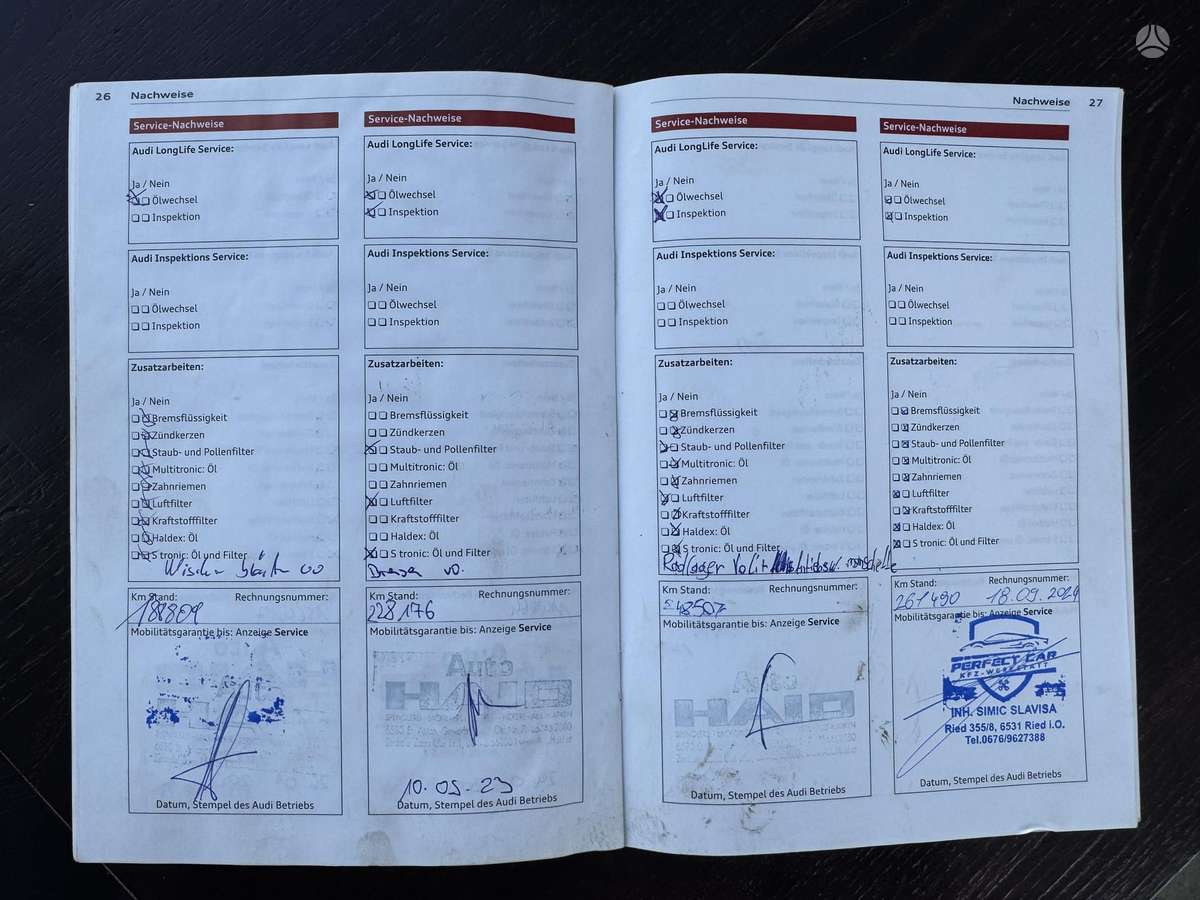 26 Nachweise
Service-Nachweise
Audi LongLife Service:
Ja / Nein
Ölwechsel
Inspektion
Audi Inspektions Service:
Ja / Nein
Ölwechsel
Inspektion
Zusatzarbeiten:
Ja / Nein
Bremsflüssigkeit
Zündkerzen
Staub- und Pollenfilter
Multitronic: Öl
Zahnriemen
Luftfilter
Kraftstofffilter
Haldex: Öl
S tronic: Öl und Filter
Km Stand: Rechnungsnummer:
Mobilitätsgarantie bis: Anzeige Service
Datum, Stempel des Audi Betriebs
Service-Nachweise
Audi LongLife Service:
Ja / Nein
Ölwechsel
Inspektion
Audi Inspektions Service:
Ja / Nein
Ölwechsel
Inspektion
Zusatzarbeiten:
Ja / Nein
Bremsflüssigkeit
Zündkerzen
Staub- und Pollenfilter
Multitronic: Öl
Zahnriemen
Luftfilter
Kraftstofffilter
Haldex: Öl
S tronic: Öl und Filter
Km Stand: Rechnungsnummer:
228176
Mobilitätsgarantie bis: Anzeige Service
10.05.23
Datum, Stempel des Audi Betriebs
Nachweise 27
Service-Nachweise
Audi LongLife Service:
Ja / Nein
Ölwechsel
Inspektion
Audi Inspektions Service:
Ja / Nein
Ölwechsel
Inspektion
Zusatzarbeiten:
Ja / Nein
Bremsflüssigkeit
Zündkerzen
Staub- und Pollenfilter
Multitronic: Öl
Zahnriemen
Luftfilter
Kraftstofffilter
Haldex: Öl
S tronic: Öl und Filter
Km Stand: Rechnungsnummer:
Mobilitätsgarantie bis: Anzeige Service
Datum, Stempel des Audi Betriebs
Service-Nachweise
Audi LongLife Service:
Ja / Nein
Ölwechsel
Inspektion
Audi Inspektions Service:
Ja / Nein
Ölwechsel
Inspektion
Zusatzarbeiten:
Ja / Nein
Bremsflüssigkeit
Zündkerzen
Staub- und Pollenfilter
Multitronic: Öl
Zahnriemen
Luftfilter
Kraftstofffilter
Haldex: Öl
S tronic: Öl und Filter
Km Stand: Rechnungsnummer:
261490 18.09.2024
Mobilitätsgarantie bis: Anzeige Service
PERFECT CAR
KFZ-WERKSTATT
INH. SIMIC SLAVISA
Ried 355/8, 6531 Ried i.O.
Tel.0676/9627388
Datum, Stempel des Audi Betriebs